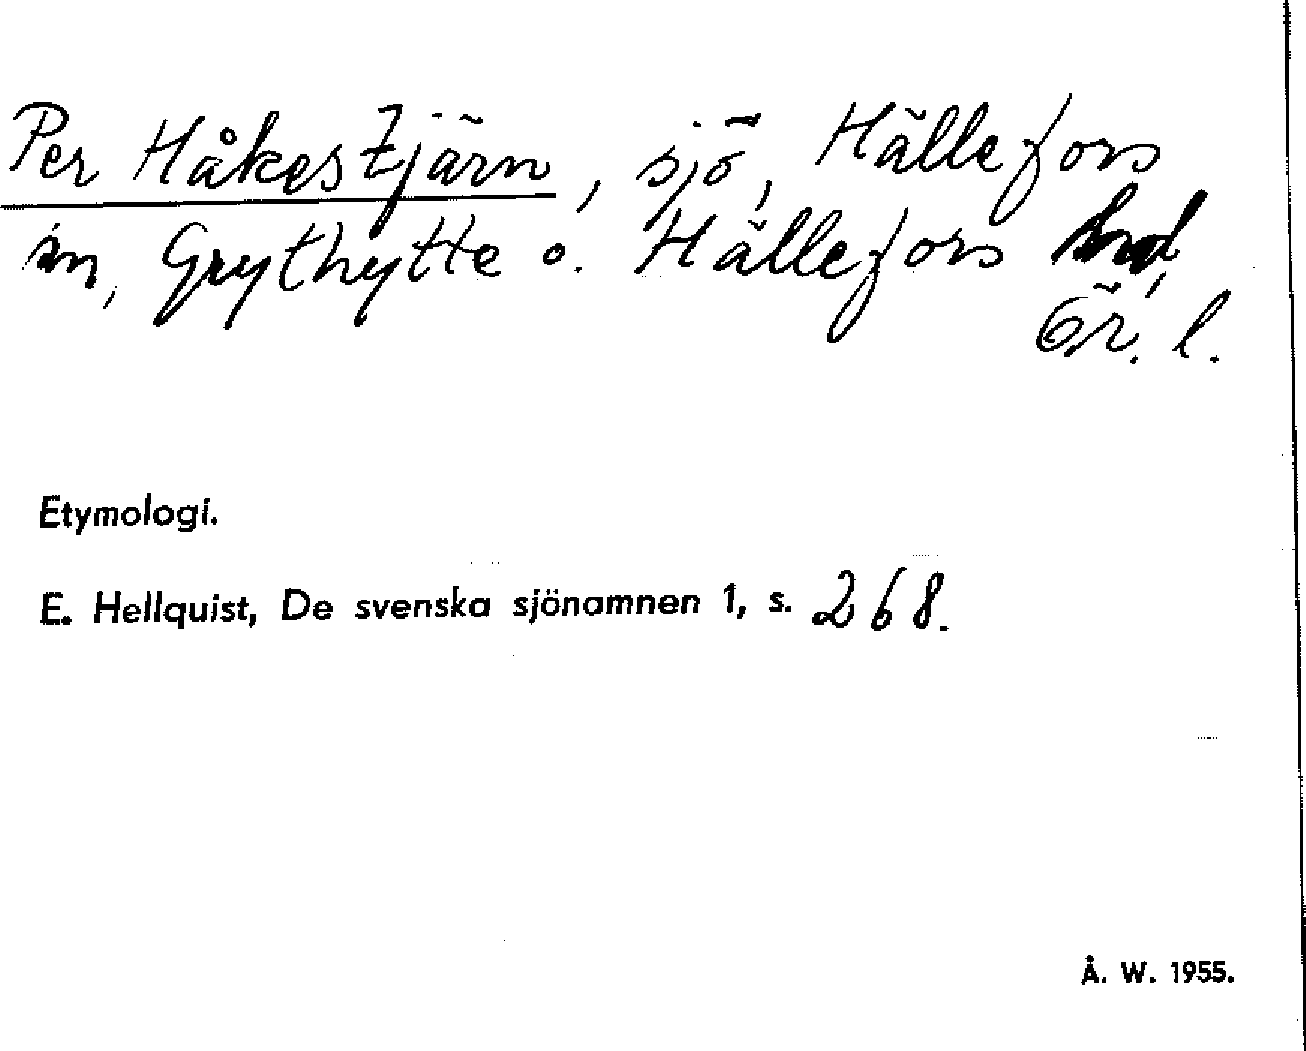 Per Håkestjärn, sjö, Hällefors
sn, Grythytte o. Hällefors hd,
Ör. l.
Etymologi.
E. Hellquist, De svenska sjönamnen 1, s. 268.
Å. W. 1955.